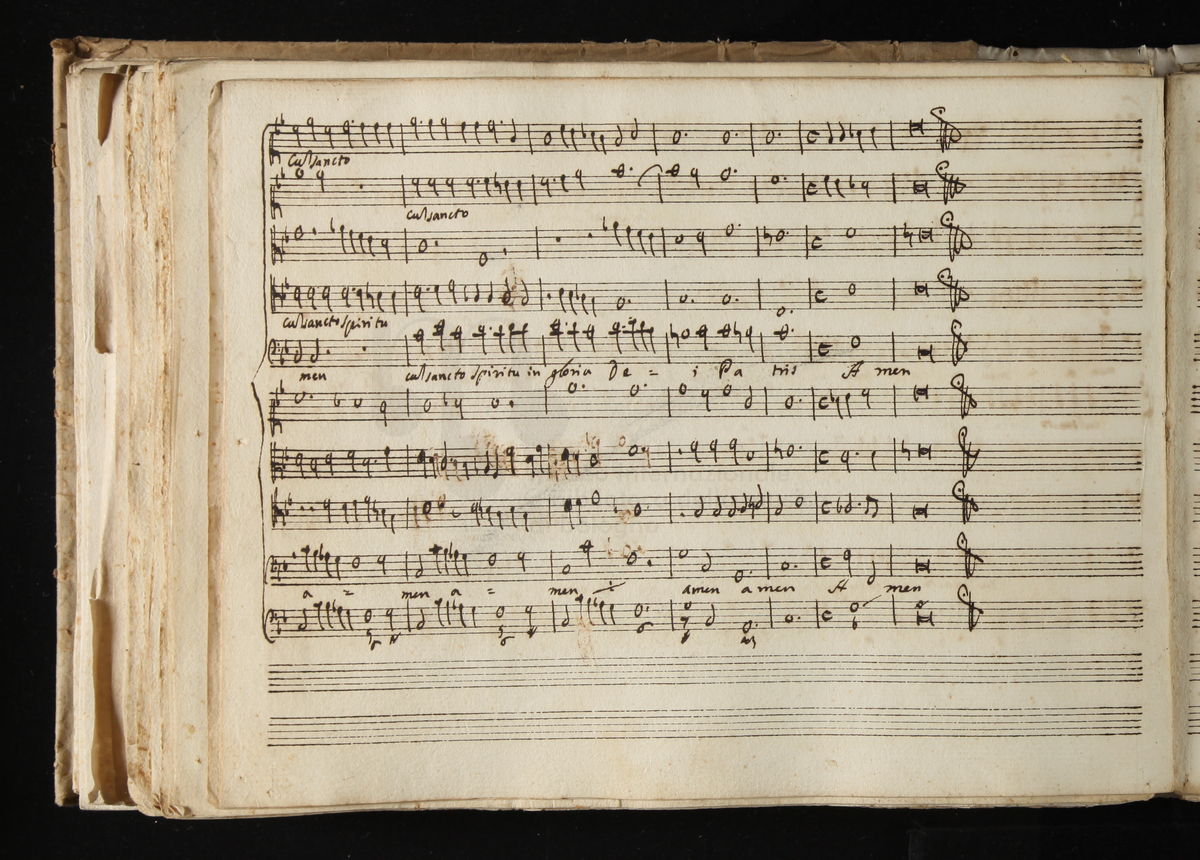 Cu[m] sancto
cu[m] sancto
cu[m] sancto spiritu
men cu[m] sancto spiritu in gloria De = i Pa tris A men
a = men a = men amen amen A men